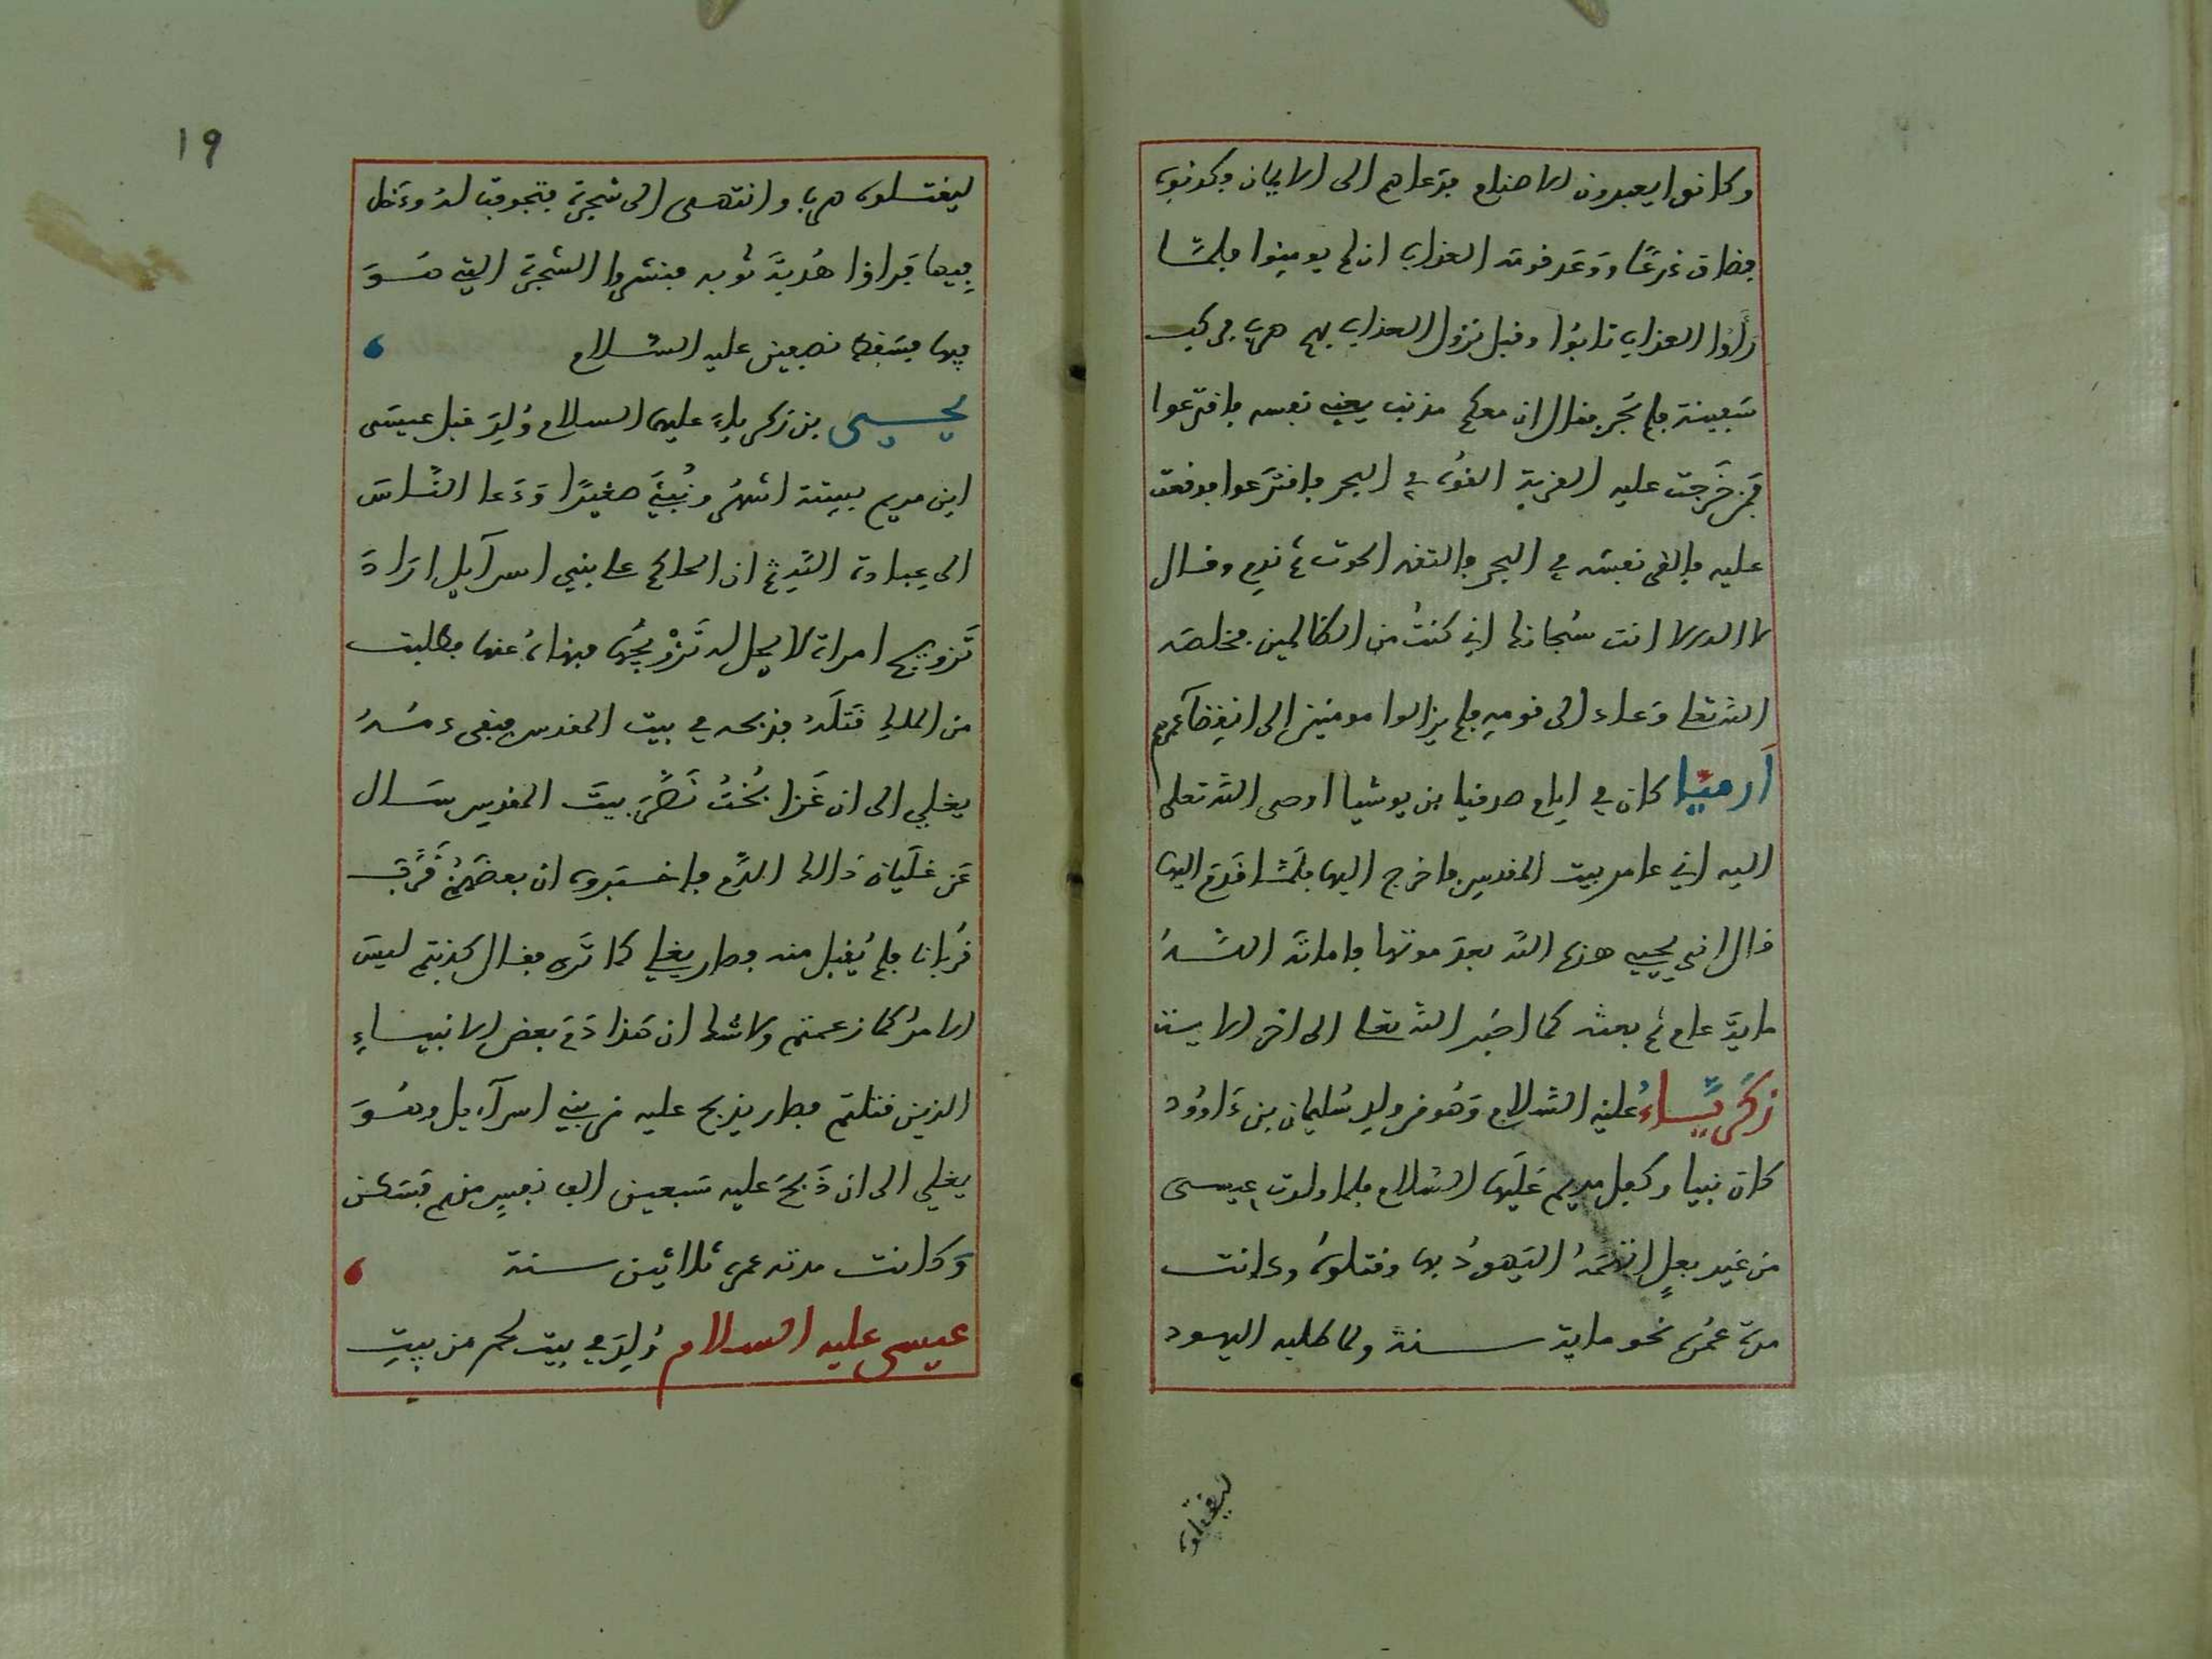 وكانوا يعبدون الاصنام فدعاهم الى الايمان فكذبوه
فضاق ذرعًا ووعد قومه العذاب ان لم يومنوا فلمّا
رأوُا العذاب تابُوا وقبل نزول العذاب بهم هرب فركب
سَفينة فلم تجر فقال ان معكم مذنب يعني نفسه فاقترعوا
فمَن خَرجت عليه القرعة القوه في البحر فاقترَعوا فوقعت
عليه فالقى نفسَه في البحر فالتقمه الحوت ثم ندم وقال
لا اله الا انت سُبحانك اني كنتُ من الظالمين فخلصه
الله تعالى وَعاد الى قومهِ فلم يزالوا مومنين إلى انقِضآء عمرهم
اَرميَّا كان في ايام صدقيا بن يوشيا اوحى الله تعلى
اليه اني عامر بيت المقدِسِ فاخرج اليها فلَمَّا قَدِمَ اليها
قال انى يحيي هذه الله بعدَ موتها فاماته اللهُ
ماية عام ثم بعثه كما اخبر الله تعالى الى اخر الاية
زكَريَّاءُ عليهِ السَّلام وَهُو من ولدِ سُليمان بن دَاوُود
كان نبيا وكفل مريم عَلَيها السَّلام فلما ولدت عيسى
من غير بعلٍ اتهَمَهُ اليَهودُ بها وقتلوهُ وكانت
مدة عمُرِه نحو ماية سنة ولما طلبه اليهود
ليقتلوه
١٩
ليقتلوه هرب وانتهى الى شجرةٍ فتجوفت لهُ ودَخل
فِيها فَراوا هُدبَة ثوبه فنشروا الشجرة التي هُوَ
فيها فسَقط نصفين عليه السَّلام
يحيى بن زكرياءَ عليهما السلام وُلِدَ قبل عيسَى
ابن مريم بسِتة اشهُر ونُبِّئَ صغيرًا وَدَعا النَّاسَ
الى عِبادة اللهِ ثم ان الحاكم على بني اسرآيل ارَادَ
تَزويج امراة لا يحل له تَزْويجُها فنهاهُ عنها فطلبت
من الملكِ قَتلَهُ فذبحه في بيت المقدس فبقى دمُهُ
يغلي الى ان غَزا بُختُ نَصَّرَ بيتَ المقدِسِ سَال
عَن غلَيان ذالك الدَّم فاخبَروه ان بعضَهُمْ قَرَّبَ
قُربانا فلم يُقبل منه فصار يغلي كما تَرى فقال كذبتم ليسَ
الامرُ كما زعمتم ولا شك ان هَذا دَمَ بعض الانبياءِ
الذين قتلتم فصار يذبح عليه من بني اسرآءيل وهُوَ
يغلي الى ان ذَبحَ عليه سَبعين الف نفسٍ منهم فسَكن
وَكانت مدة عمره ثلاثين سنة
عيسى عليه السلام وُلِدَ في بيت لحم من بيتِ